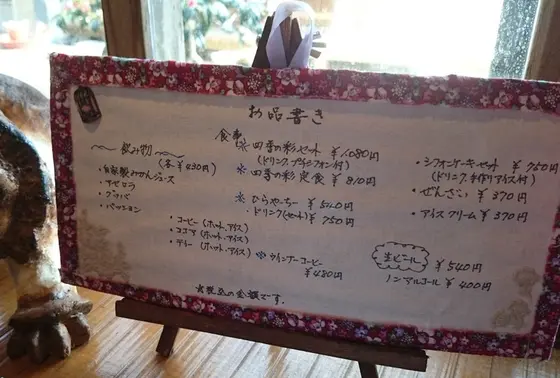 お品書き
～飲み物～
(各¥430円)
・自家製みかんジュース
・アセロラ
・グァバ
・パッション
・コーヒー(ホット・アイス)
・ココア(ホット・アイス)
・ティー(ホット・アイス)
食事
※四季の彩セット ¥1,080円
(ドリンク、プチシフォン付)
※四季の彩定食 ¥810円
※ひらやーちー ¥540円
・ドリンク(セット) ¥750円
※ウインナーコーヒー
¥480円
・シフォンケーキセット ¥750円
(ドリンク、手作りアイス付)
・ぜんざい ¥370円
・アイスクリーム ¥370円
生ビール ¥540円
ノンアルコール ¥400円
※税込の金額です。